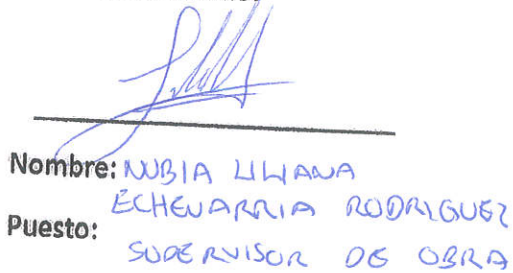 Nombre: NUBIA LILIANA
ECHEVARRIA RODRIGUEZ
Puesto:
SUPERVISOR DE OBRA